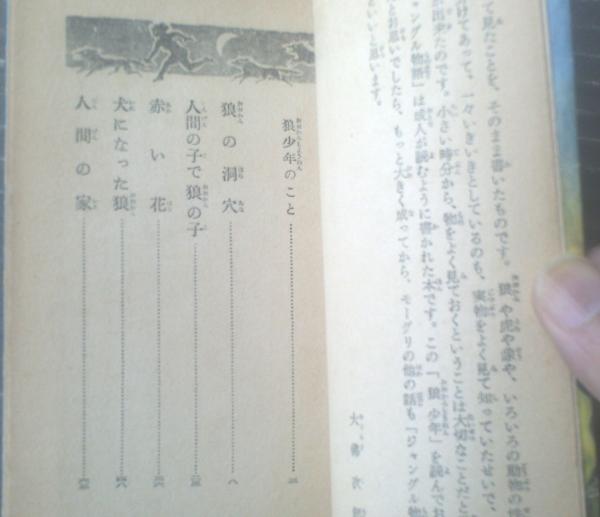 て見たことを、そのまま書いたものです。狼や虎や象や、いろいろの動物の
けてあって、一々いきいきとしているのも、実物をよく見て知っていたせいで、
が出来たのです。小さい時分から、物をよく見ておくということは大切なことだと
ャングル物語』は成人が読むように書かれた本です。この『狼少年』を読んでお
とお思いでしたら、もっと大きく成ってから、モーグリの他の話も『ジャングル物
いいと思います。
大佛次郎
狼少年のこと
狼の洞穴 八
人間の子で狼の子
赤い花
犬になった狼
人間の家